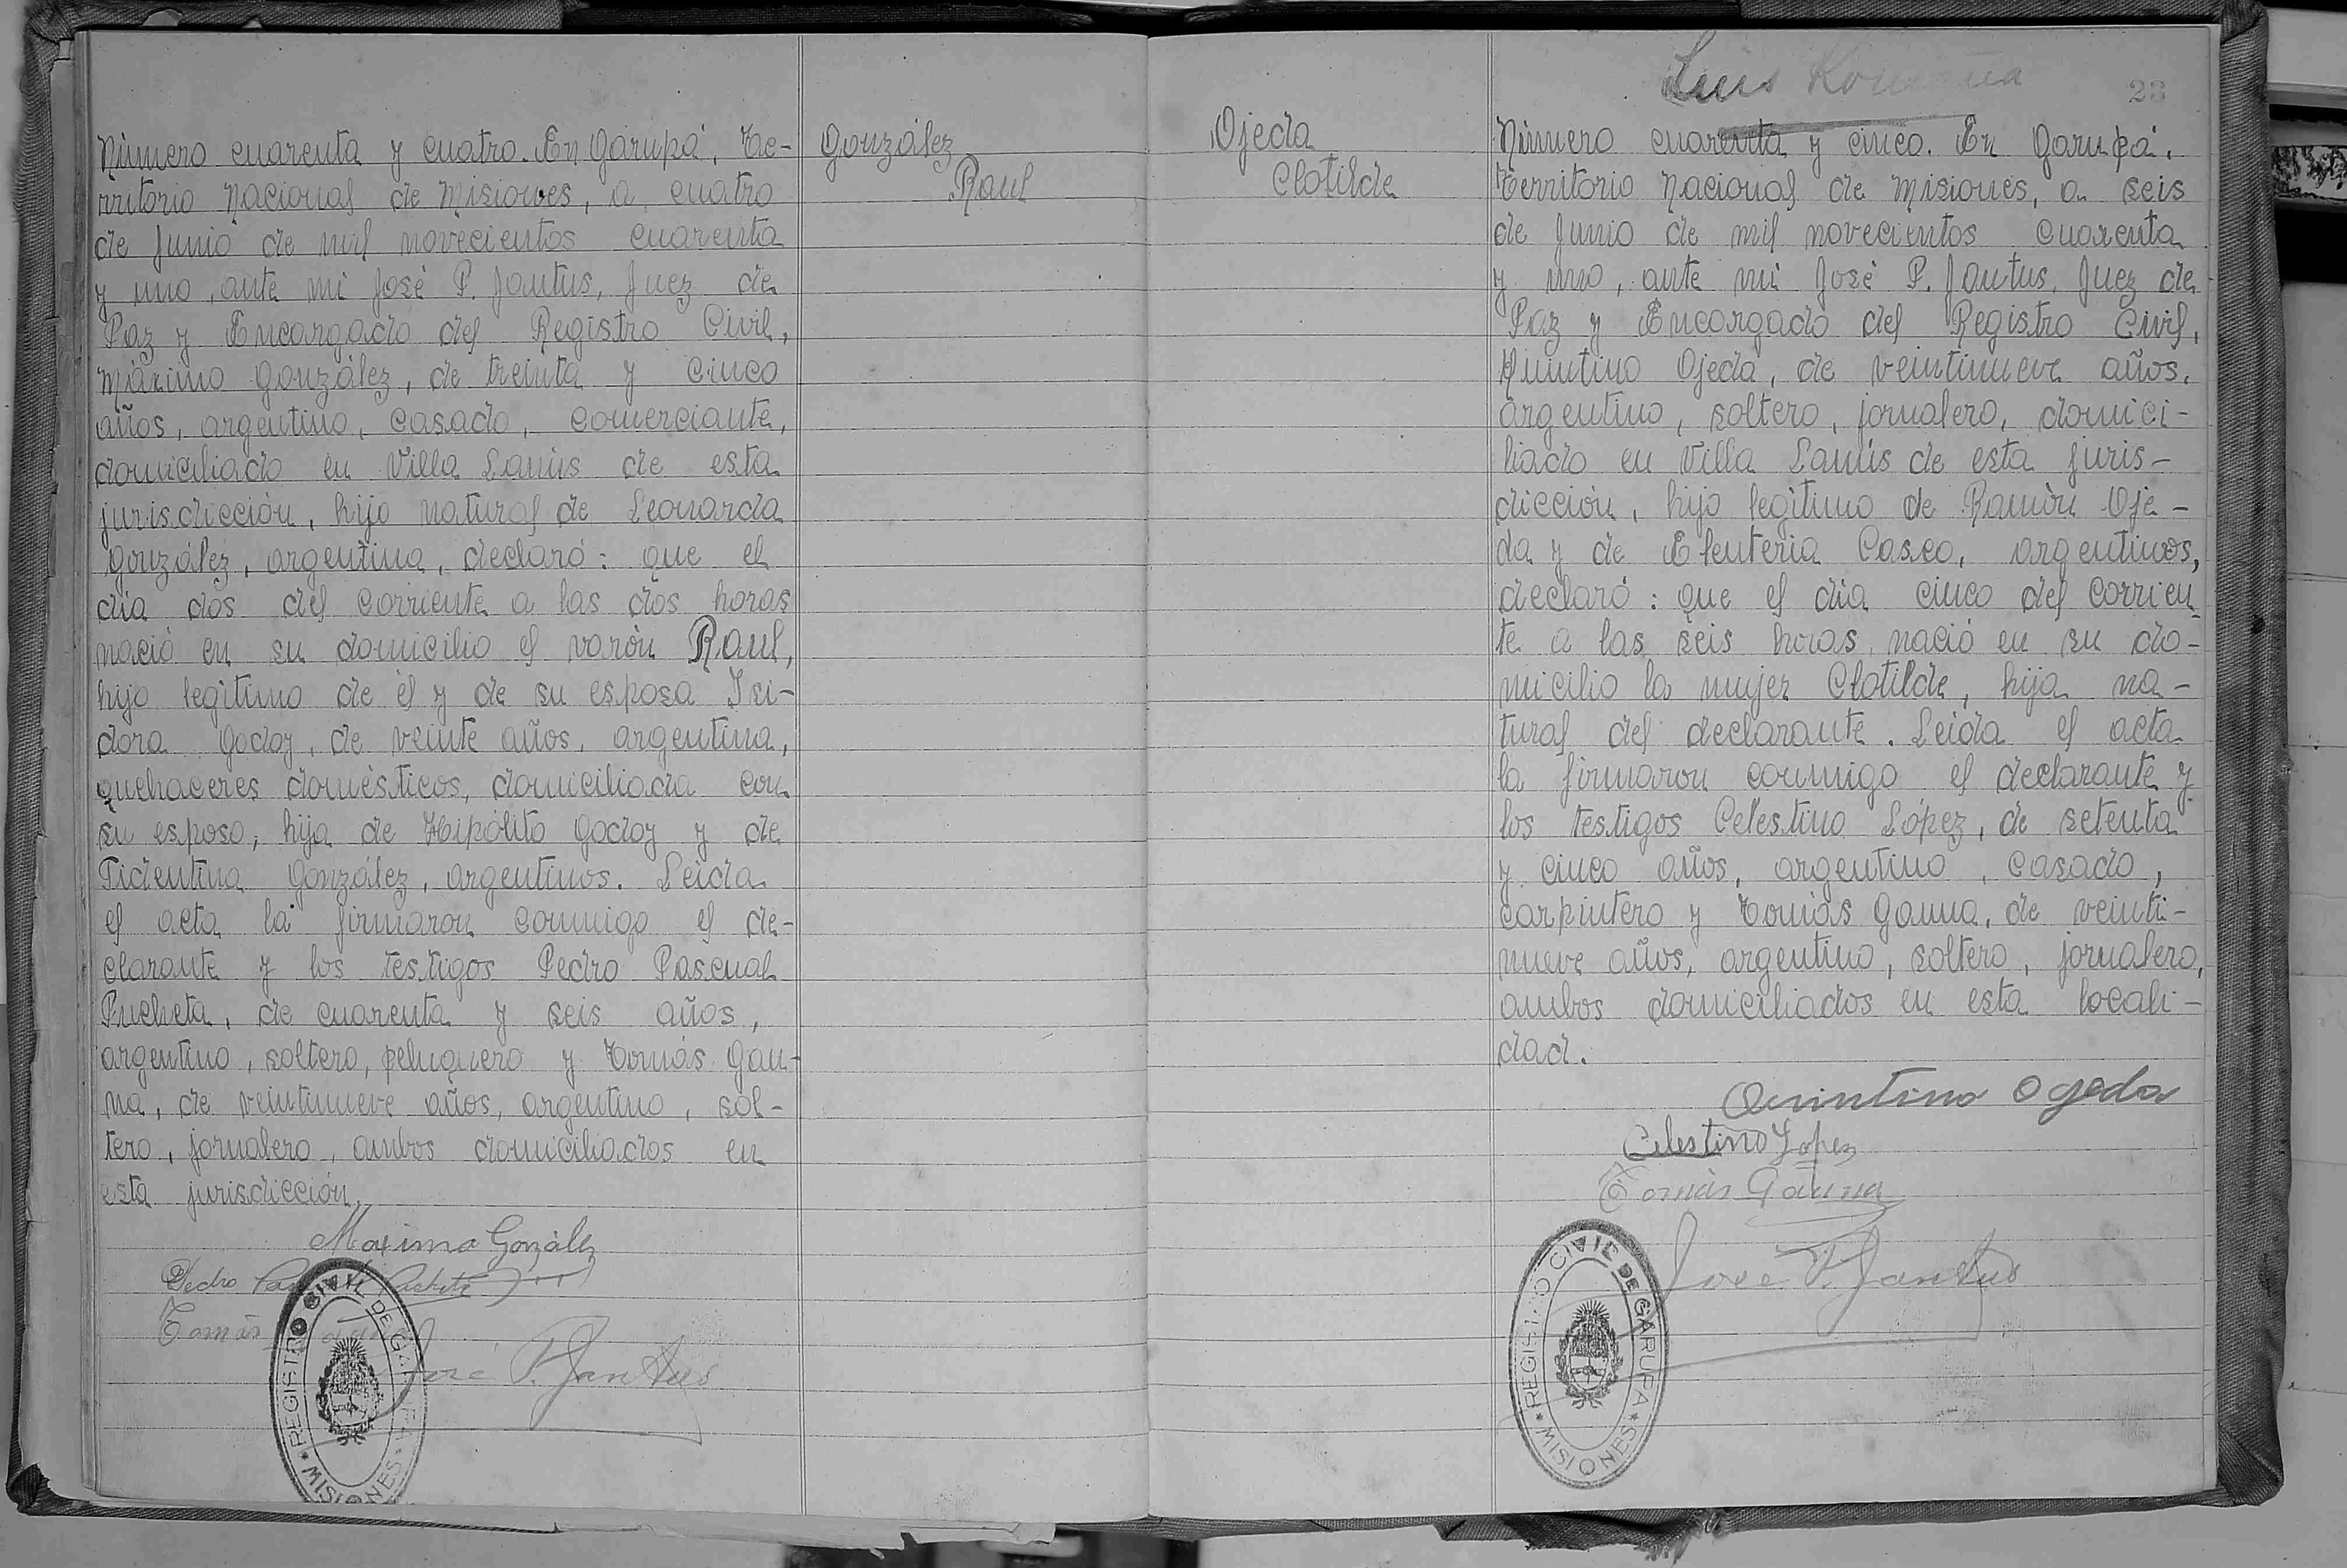 Número cuarenta y cuatro. En Garupá, Te-
rritorio Nacional de Misiones, a cuatro
de Junio de mil novecientos cuarenta
y uno, ante mi José P. Jantus, Juez de
Paz y Encargado del Registro Civil,
Máximo González, de treinta y cinco
años, argentino, casado, comerciante,
domiciliado en Villa Lanús de esta
jurisdicción, hijo natural de Leonarda
González, argentina, declaró: que el
día dos del corriente a las dos horas
nació en su domicilio el varón Raul,
hijo legítimo de él y de su esposa Isi-
dora Godoy, de veinte años, argentina,
quehaceres domésticos, domiciliada con
su esposo, hija de Hipólito Godoy y de
González, argentinos. Leida
el acta la firmaron conmigo el de-
clarante y los testigos Pedro Pascual
Pucheta, de cuarenta y seis años,
argentino, soltero, peluquero y Tomás Gau-
na, de veintinueve años, argentino, sol-
tero, jornalero, ambos domiciliados en
esta jurisdicción.
Maximo González
Pedro
Tomás
José P. Jantus
REGISTRO CIVIL DE GARUPA
* MISIONES *
González
Raul
Ojeda
Clotilde
Luis
23
Número cuarenta y cinco. En Garupá,
Territorio Nacional de Misiones, a seis
de Junio de mil novecientos cuarenta
y uno, ante mi José P. Jantus, Juez de
Paz y Encargado del Registro Civil,
Quintino Ojeda, de veintinueve años,
argentino, soltero, jornalero, domici-
liado en Villa Lanús de esta juris-
dicción, hijo legítimo de Ramón Oje-
da y de Eleuteria Casco, argentinos,
declaró: que el día cinco del corrien
te a las seis horas, nació en su do-
micilio la mujer Clotilde, hija na-
tural del declarante. Leida el acta
la firmaron conmigo el declarante y
los testigos Celestino López, de setenta
y cinco años, argentino, casado,
carpintero y Tomás Gauna, de veinti-
nueve años, argentino, soltero, jornalero,
ambos domiciliados en esta locali-
dad.
Quintino Ogeda
Celestino Lopez
Tomás Gauna
José P. Jantus
REGISTRO CIVIL DE GARUPA
* MISIONES *